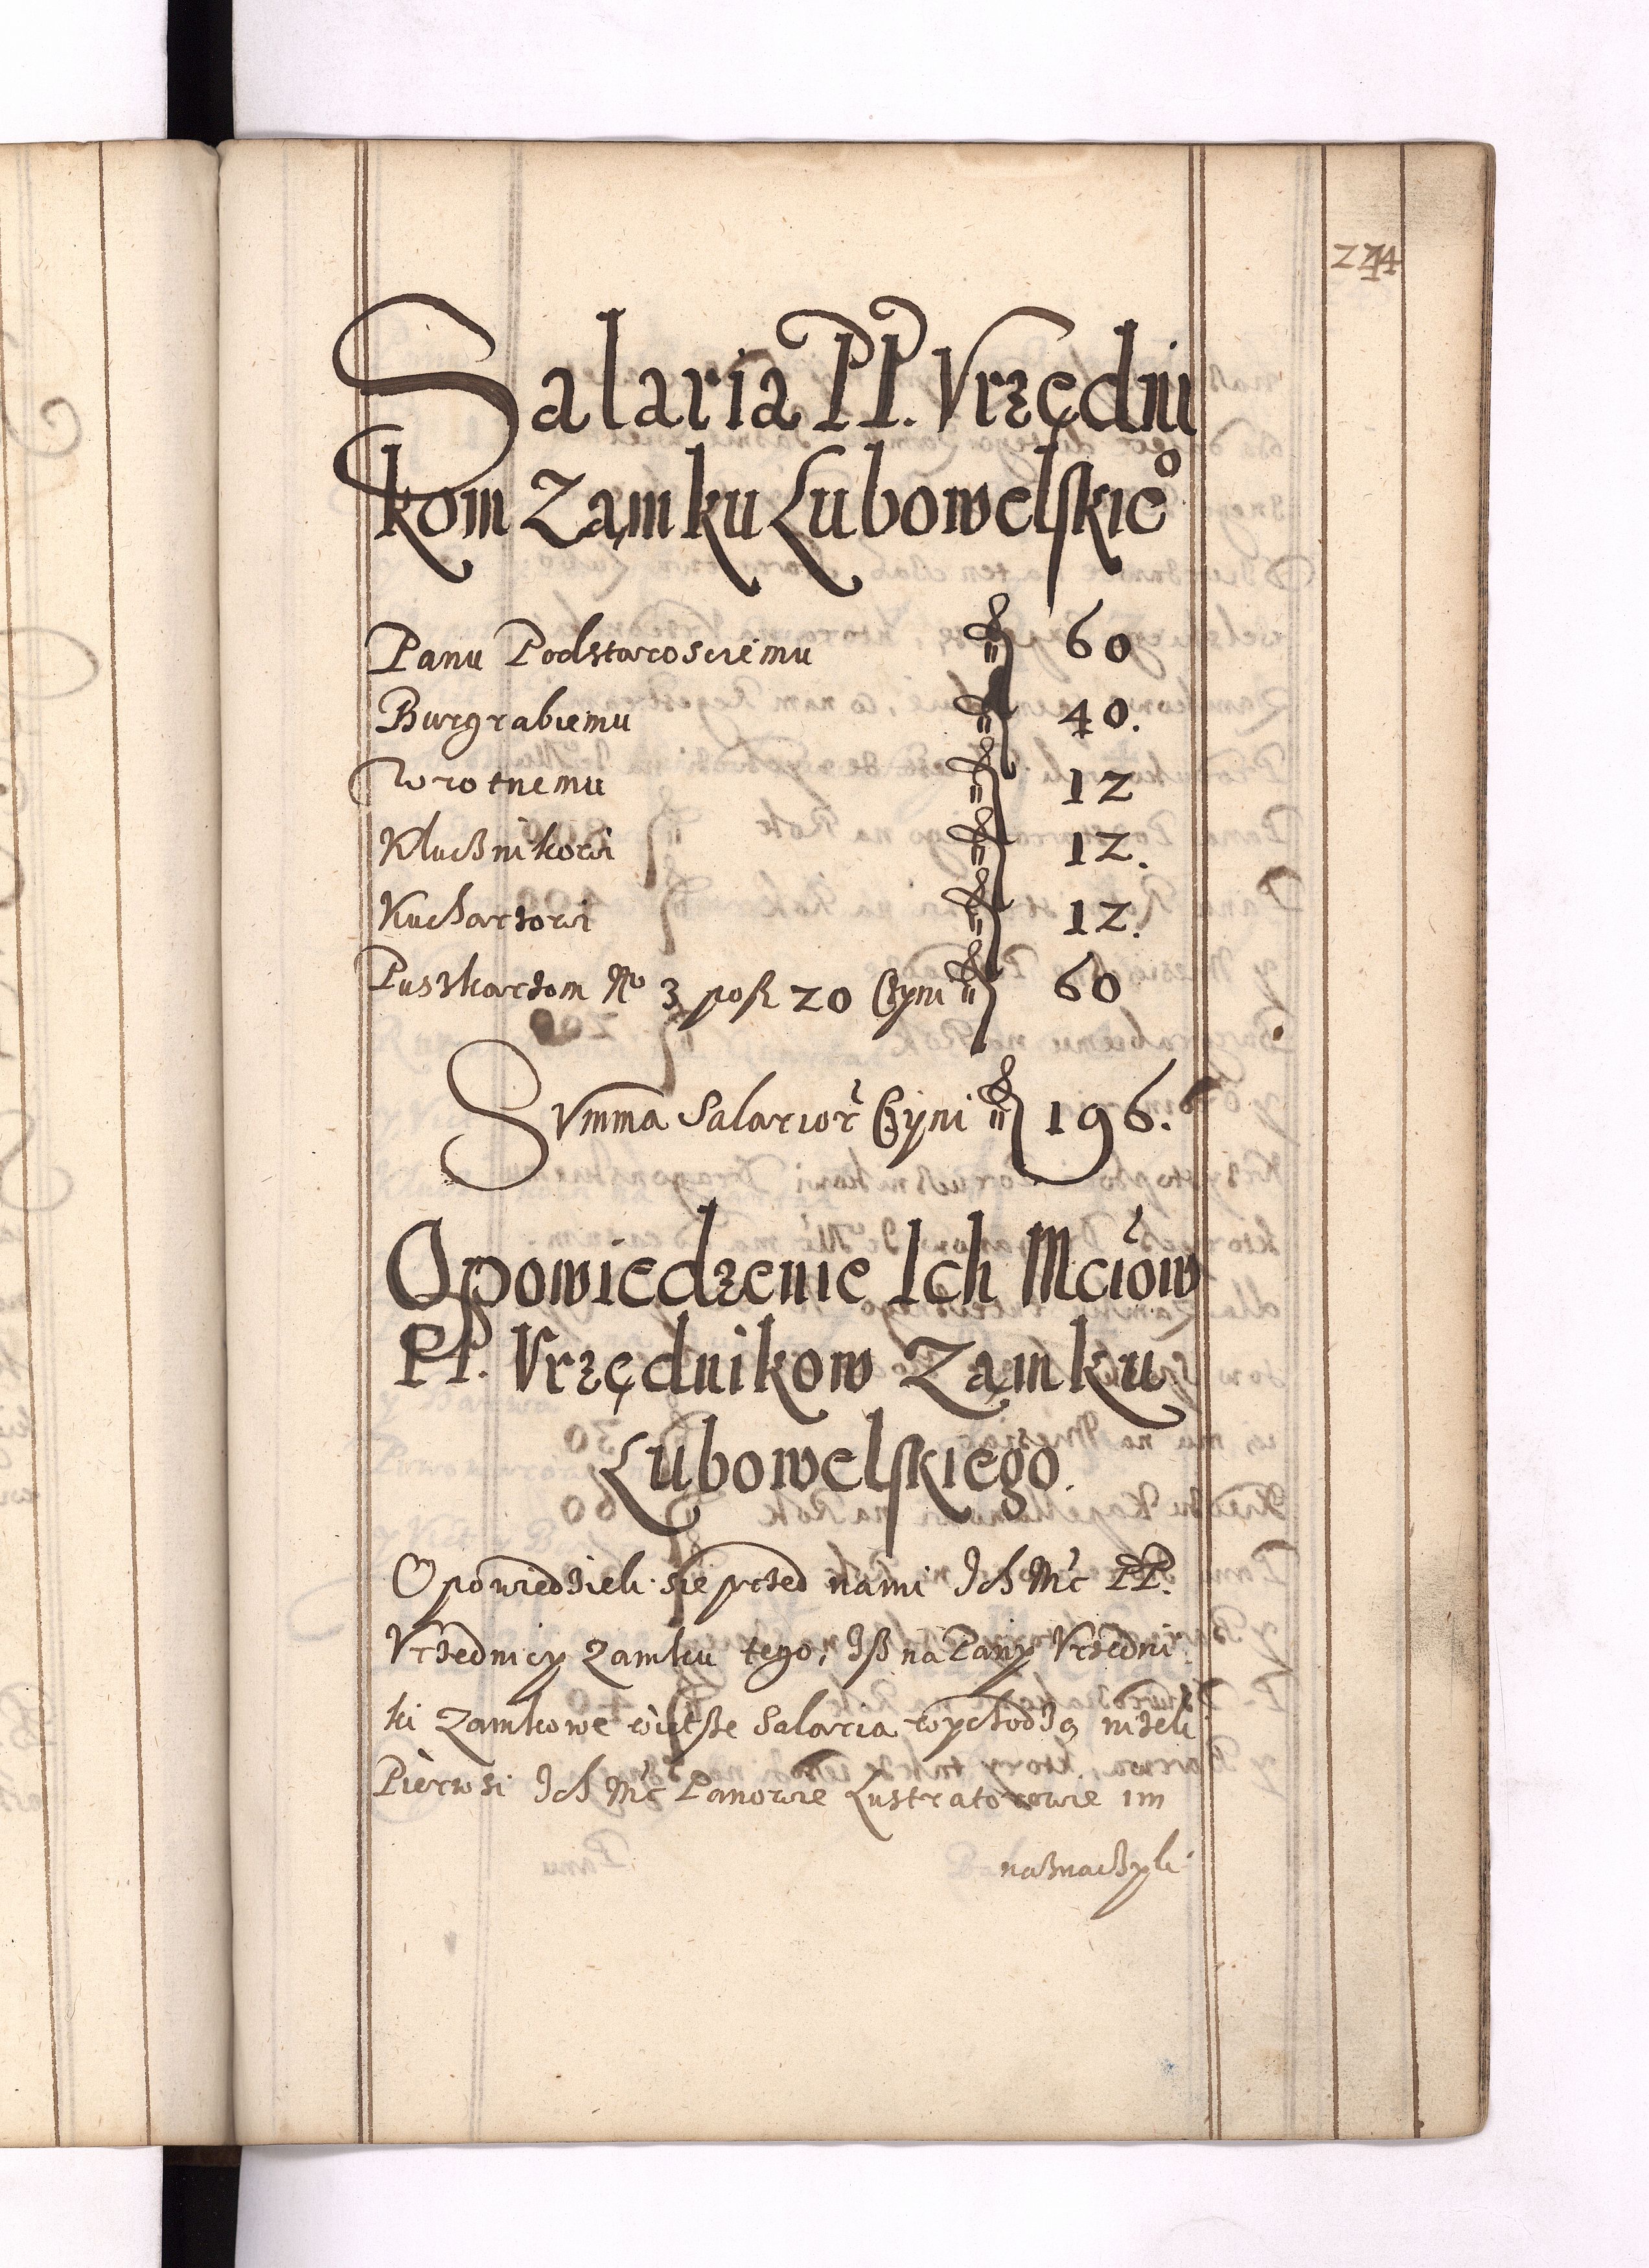 Salaria PP. Vrzędni
kom Zamku Lubowelskieo
Panu Podstarosciemu fl 60
Burgrabiemu fl 40.
Wrotnemu fl 12
Klucznikowi fl 12.
Kucharzowi fl 12.
Puszkarzom No 3 po fl 20 Czyni fl 60
Summa Salarior Czyni fl 196.
Opowiedzenie Ich Mciow
PP. Vrzędnikow Zamku
Lubowelskiego.
Opowiedzieli sie przed nami Ich Mc PP.
Vrzednicy Zamku tego, Iß na Pany Vrzedni
ki Zamkowe więtße Salaria wychodzą nizeli
Pierwsi Ich Mc Panowie Lustratorowie im
naznaczyli